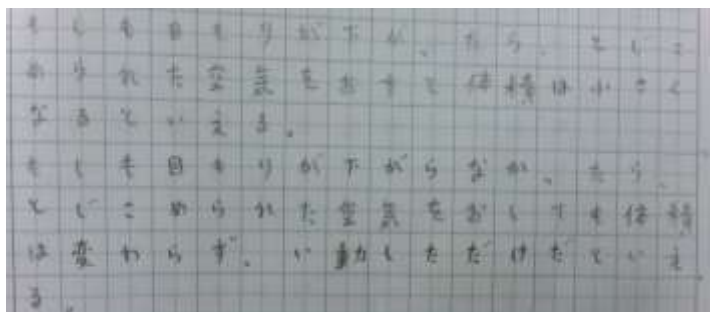 もしも目もりが下がったら、とじこ
められた空気をおすと体積は小さく
なるといえる。
もしも目もりが下がらなかったら、
とじこめられた空気をおしても体積
は変わらず、い動しただけだといえ
る。